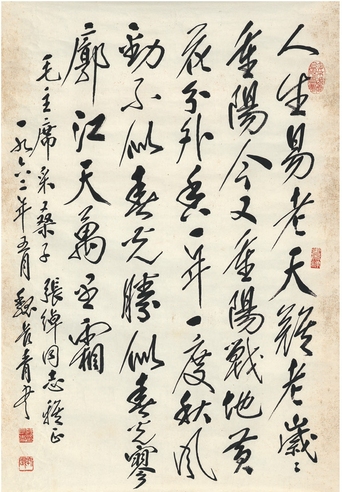 人生易老天难老岁〻
重陽今又重陽戰地黄
花分外香一年一度秋风
勁不似春光勝似春光寥
廓江天萬里霜
毛主席采桑子 張綽同志雅正
一九六二年五月 魏長青书